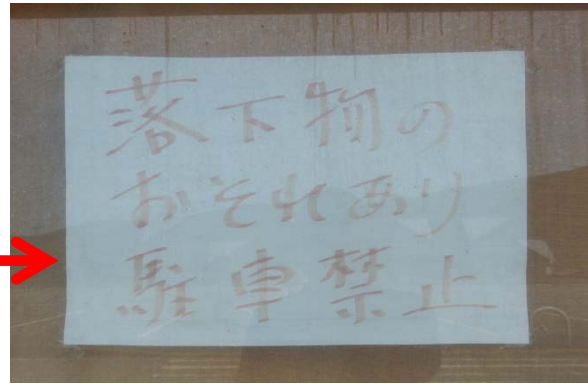 落下物の
おそれあり
駐車禁止